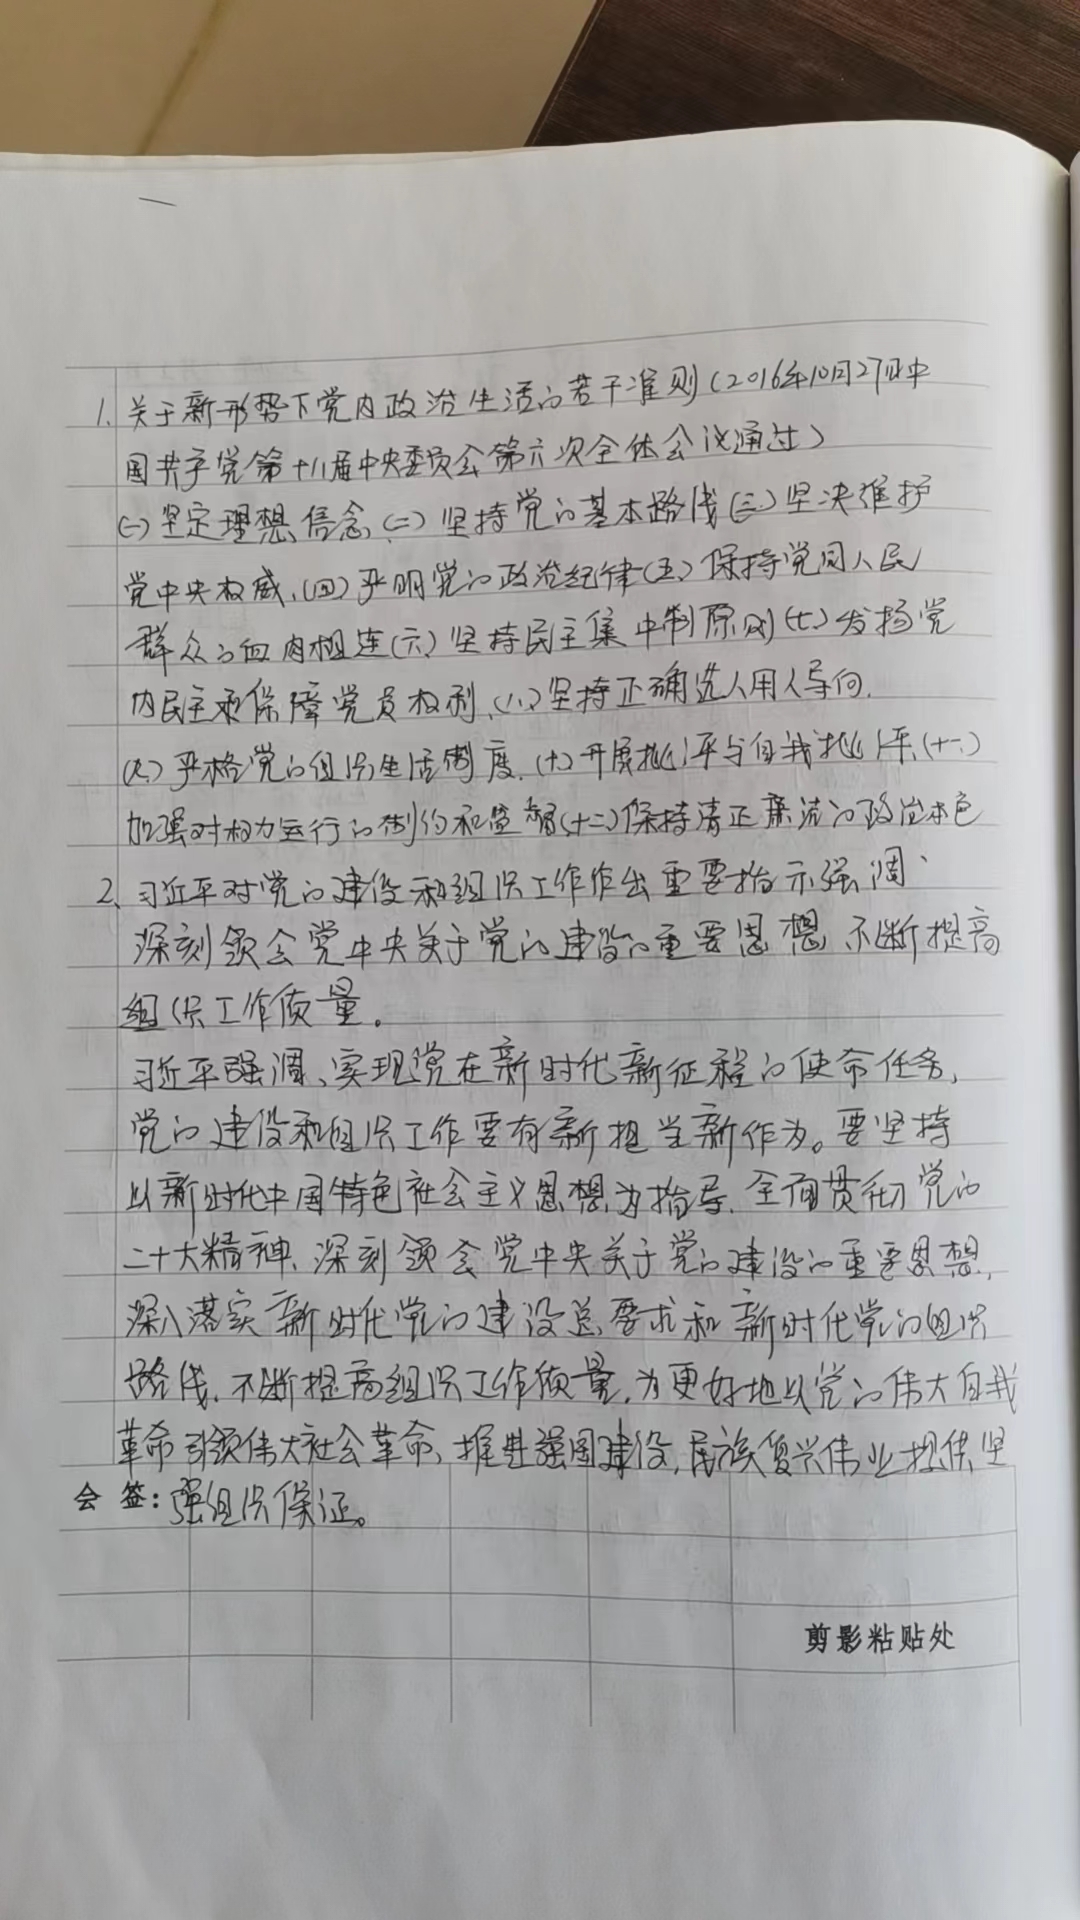 1.关于新形势下党内政治生活的若干准则(2016年10月27日中
国共产党第十八届中央委员会第六次全体会议通过)
(一)坚定理想信念、(二)坚持党的基本路线(三)坚决维护
党中央权威、(四)严明党的政治纪律(五)保持党同人民
群众的血肉相连(六)坚持民主集中制原则(七)发扬党
内民主和保障党员权利、(八)坚持正确选人用人导向.
(九)严格党的组织生活制度.(十)开展批评与自我批评、(十一)
加强对权力运行的制约和监督(十二)保持清正廉洁的政治本色
2、习近平对党的建设和组织工作作出重要指示强调、
深刻领会党中央关于党的建设的重要思想 不断提高
组织工作质量。
习近平强调、实现党在新时代新征程的使命任务,
党的建设和组织工作要有新担当新作为。要坚持
以新时代中国特色社会主义思想为指导.全面贯彻党的
二十大精神、深刻领会党中央关于党的建设的重要思想,
深入落实新时代党的建设总要求和新时代党的组织
路线.不断提高组织工作质量,为更好地以党的伟大自我
革命引领伟大社会革命、推进强国建设,民族复兴伟业提供坚
会 签: 强组织保证。
剪影粘贴处